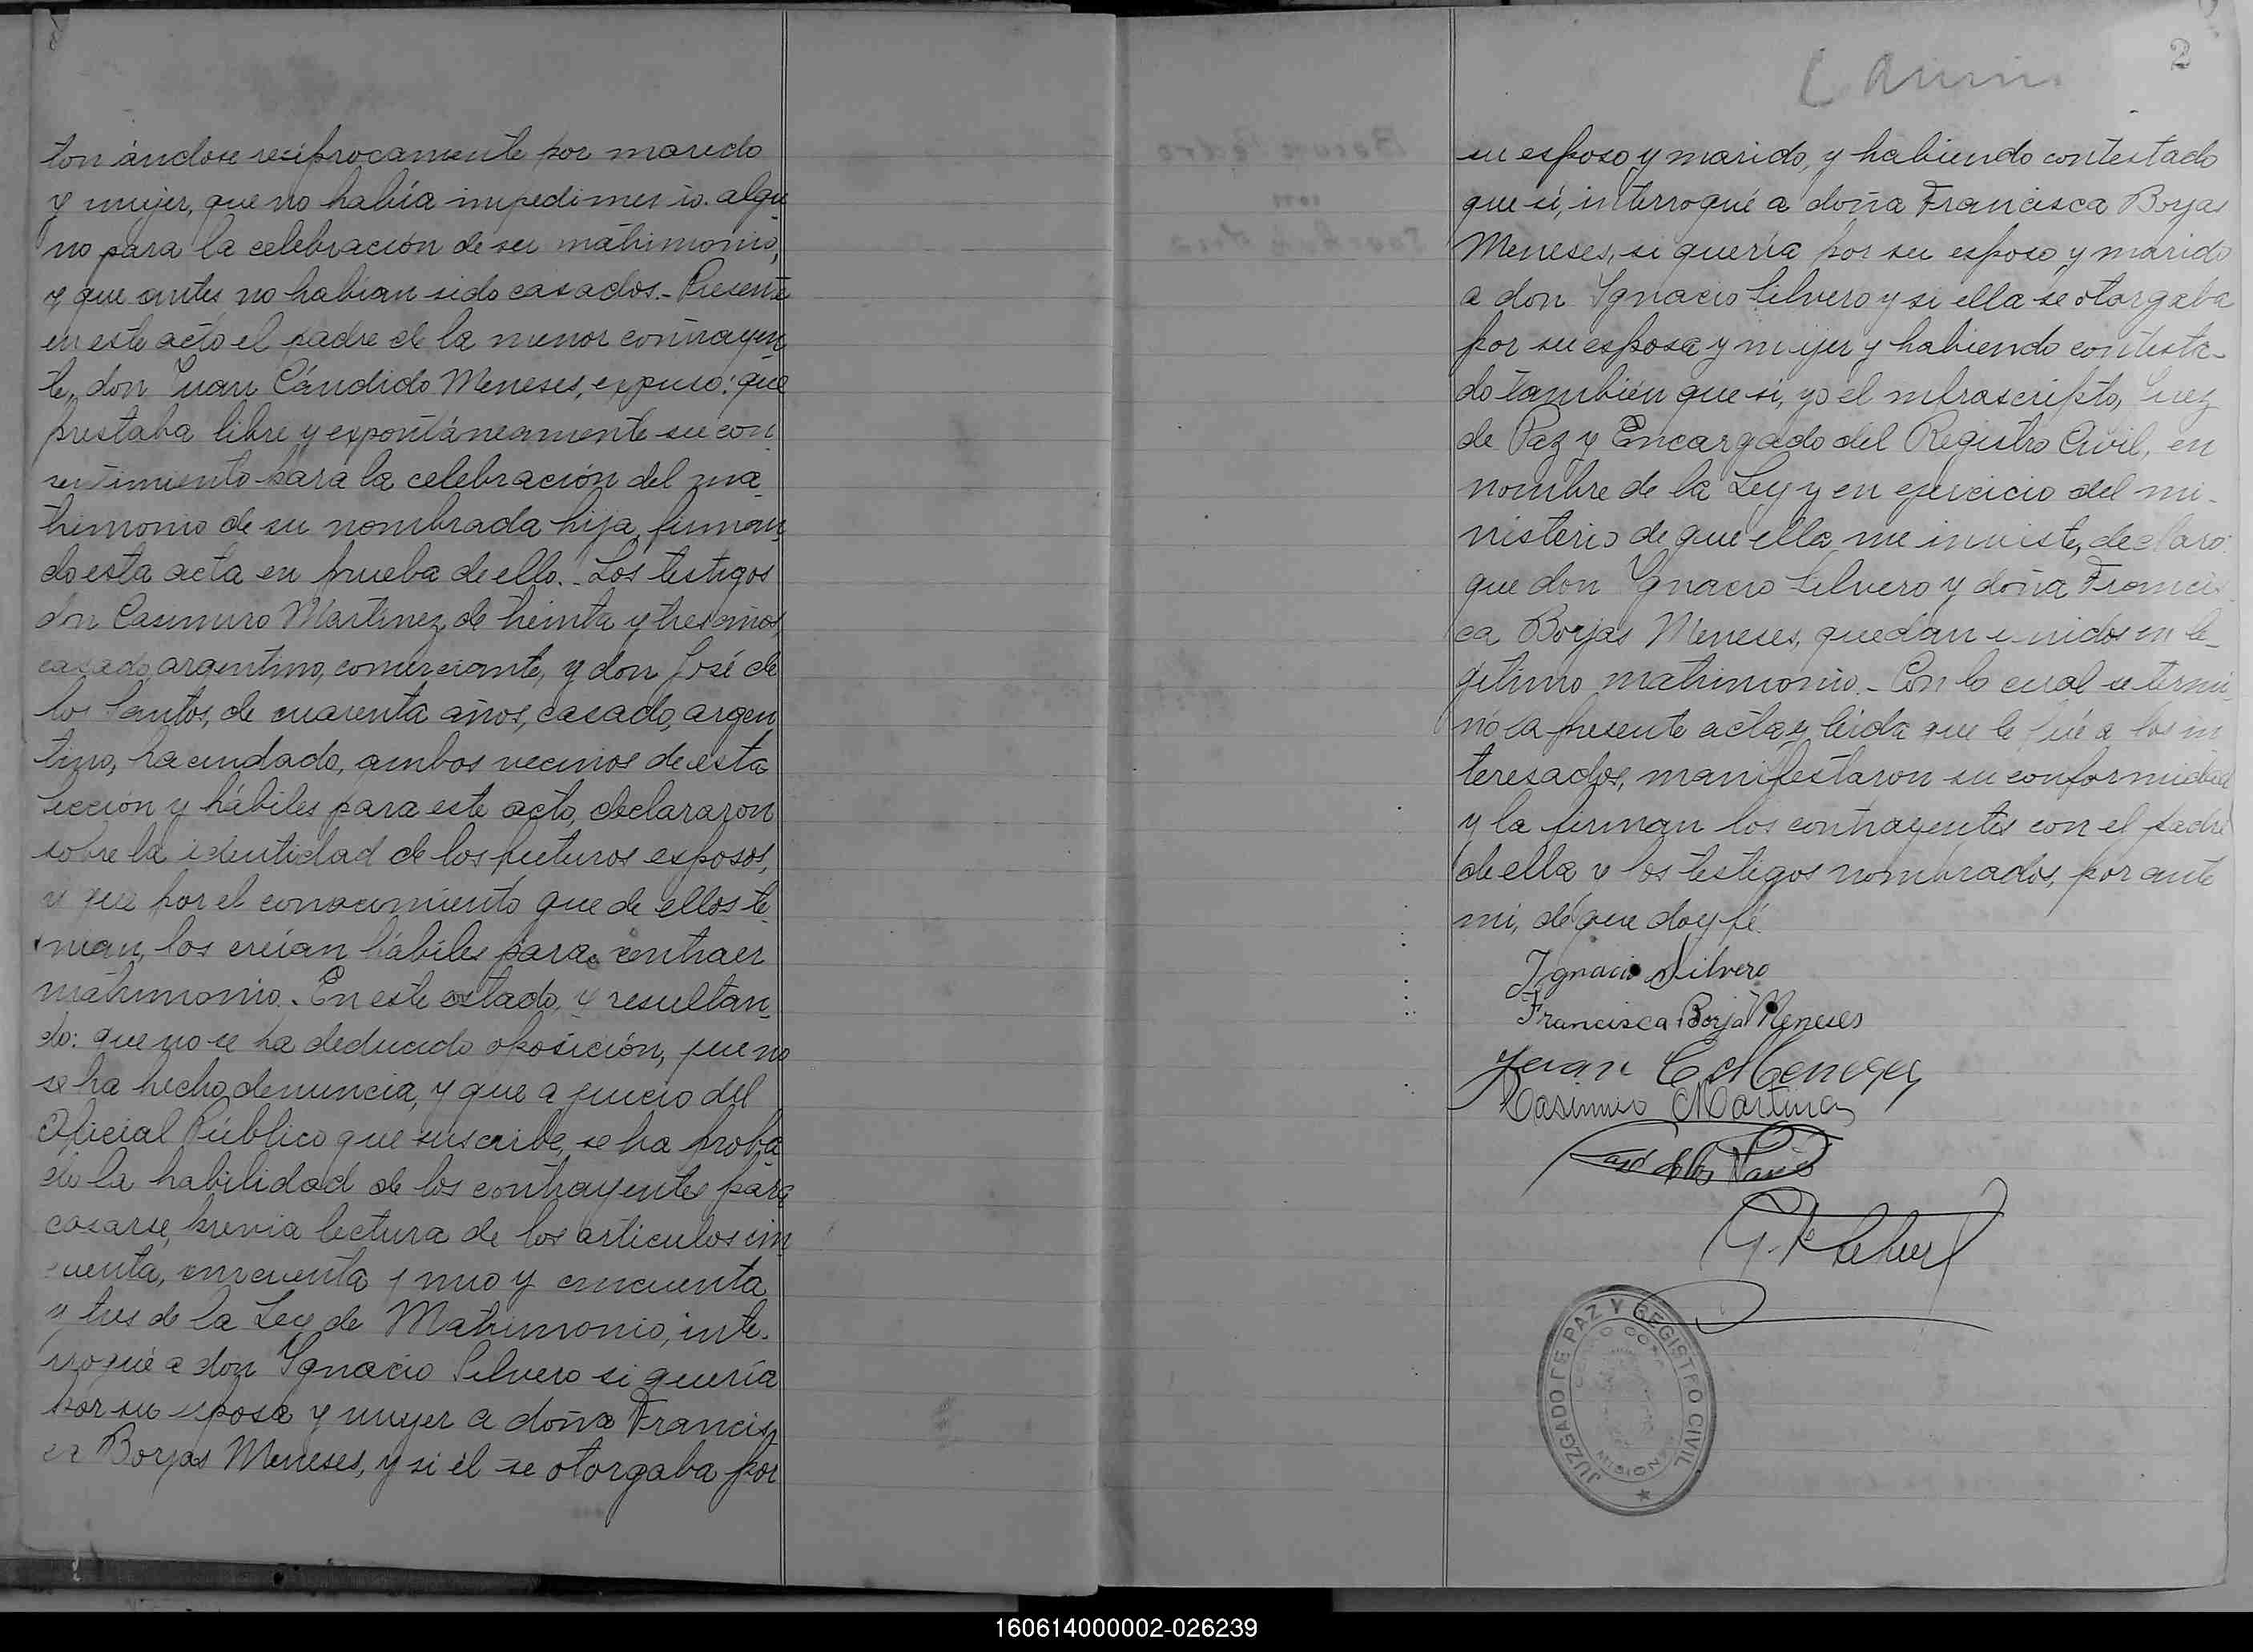 tonándose reciprocamente por marido
y mujer, que no había impedimento algu
no para la celebración de su matrimonio,
y que antes no habian sido casados.- Presente
en este acto el padre de la menor contrayen
te, don Juan Cándido Meneses, expuso: que
prestaba libre y expontáneamente su con
sentimiento para la celebración del ma
trimonio de su nombrada hija, firman
do esta acta en prueba de ello.- Los testigos
don Casimiro Martinez, de treinta y tres años,
casado, argentino, comerciante, y don José de
los Santos, de cuarenta años, casado, argen
tino, hacendado, ambos vecinos de esta
sección y hábiles para este acto, declararon
sobre la identidad de los futuros esposos,
y que por el conocimiento que de ellos te
nian, los creían hábiles para contraer
matrimonio.- En este estado, y resultan
do: que no se ha deducido oposición, que no
se ha hecho denuncia, y que a juicio del
Oficial Público que suscribe, se ha proba
do la habilidad de los contrayentes para
casarse, previa lectura de los articulos cin
cuenta, cincuenta y uno y cincuenta
y tres de la Ley de Matrimonio, inte-
rrogué a don Ygnacio Silvero si quería
por su esposa y mujer a doña Francis
ca Borjas Meneses, y si él se otorgaba por
2
su esposo y marido, y habiendo contestado
que sí, interrogué a doña Francisca Borjas
Meneses, si quería por su esposo y marido
a don Ygnacio Silvero y si ella se otorgaba
por su esposa y mujer y habiendo contesta-
do también que si, yo el infrascripto, Juez
de Paz y Encargado del Registro Civil, en
nombre de la Ley y en ejercicio del mi-
nisterio de que ella me inviste, declaro:
que don Ygnacio Silvero y doña Francis
ca Borjas Meneses, quedan unidos en le-
gitimo matrimonio.- Con lo cual se termi
nó la presente acta y leida que le fué a los in
teresados, manifestaron su conformidad
y la firman los contrayentes con el padre
de ella y los testigos nombrados, por ante
mi, de que doy fé.
Ignacio Silvero
Francisca Borja Meneses
Juan C Meneses
Casimiro Martinez
José de los Santos
JUZGADO DE PAZ Y REGISTRO CIVIL
MISIONES
160614000002-026239